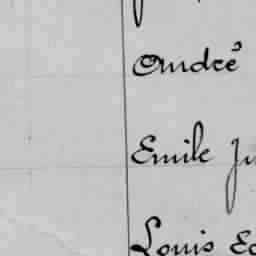 André
Emile Ju
Louis Ed